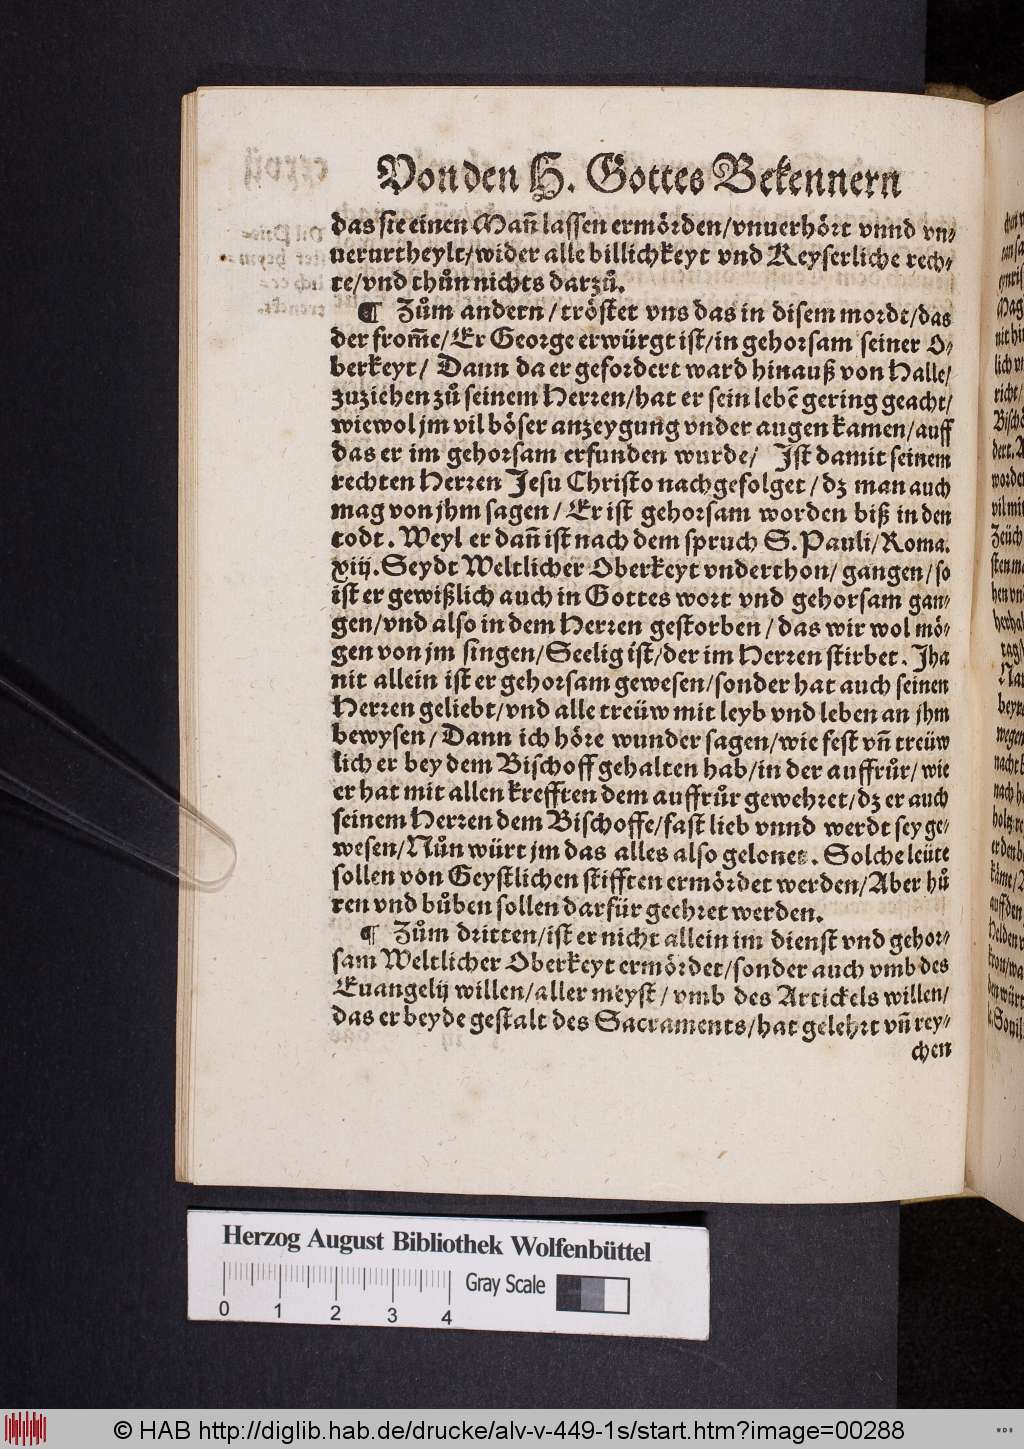 Von den H. Gottes Bekennern
das sie einen Mañ lassen ermörden/vnuerhört vnnd vn-
uerurtheylt/wider alle billichkeyt vnd Keyserliche rech-
te/vnd thůn nichts darzů.
¶ Zům andern/tröstet vns das in disem mordt/das
der from̃e/Er George erwürgt ist/in gehorsam seiner O-
berkeyt/ Dann da er gefordert ward hinauß von Halle/
zuziehen zů seinem Herren/hat er sein lebẽ gering geacht/
wiewol jm vil böser anzeygung vnder augen kamen/auff
das er im gehorsam erfunden wurde/ Ist damit seinem
rechten Herren Jesu Christo nachgefolget/dz man auch
mag von jhm sagen/Er ist gehorsam worden biß in den
todt. Weyl er dañ ist nach dem spruch S. Pauli/Roma.
xiij. Seydt Weltlicher Oberkeyt vnderthon/gangen/so
ist er gewißlich auch in Gottes wort vnd gehorsam gan-
gen/vnd also in dem Herren gestorben/das wir wol mö-
gen von jm singen/Seelig ist/der im Herren stirbet. Jha
nit allein ist er gehorsam gewesen/sonder hat auch seinen
Herren geliebt/vnd alle treüw mit leyb vnd leben an jhm
bewysen/Dann ich höre wunder sagen/wie fest vñ treüw
lich er bey dem Bischoff gehalten hab/in der auffrůr/wie
er hat mit allen krefften dem auffrůr gewehret/dz er auch
seinem Herren dem Bischoffe/fast lieb vnnd werdt sey ge-
wesen/Nůn würt jm das alles also gelonet. Solche leüte
sollen von Geystlichen stifften ermördet werden/Aber hů
ren vnd bůben sollen darfür geehret werden.
¶ Zům dritten/ist er nicht allein im dienst vnd gehor-
sam Weltlicher Oberkeyt ermördet/sonder auch vmb des
Euangelij willen/aller meyst/vmb des Artickels willen/
das er beyde gestalt des Sacraments/hat gelehrt vñ rey-
chen
Herzog August Bibliothek Wolfenbüttel
Gray Scale
0 1 2 3 4
© HAB http://diglib.hab.de/drucke/alv-v-449-1s/start.htm?image=00288